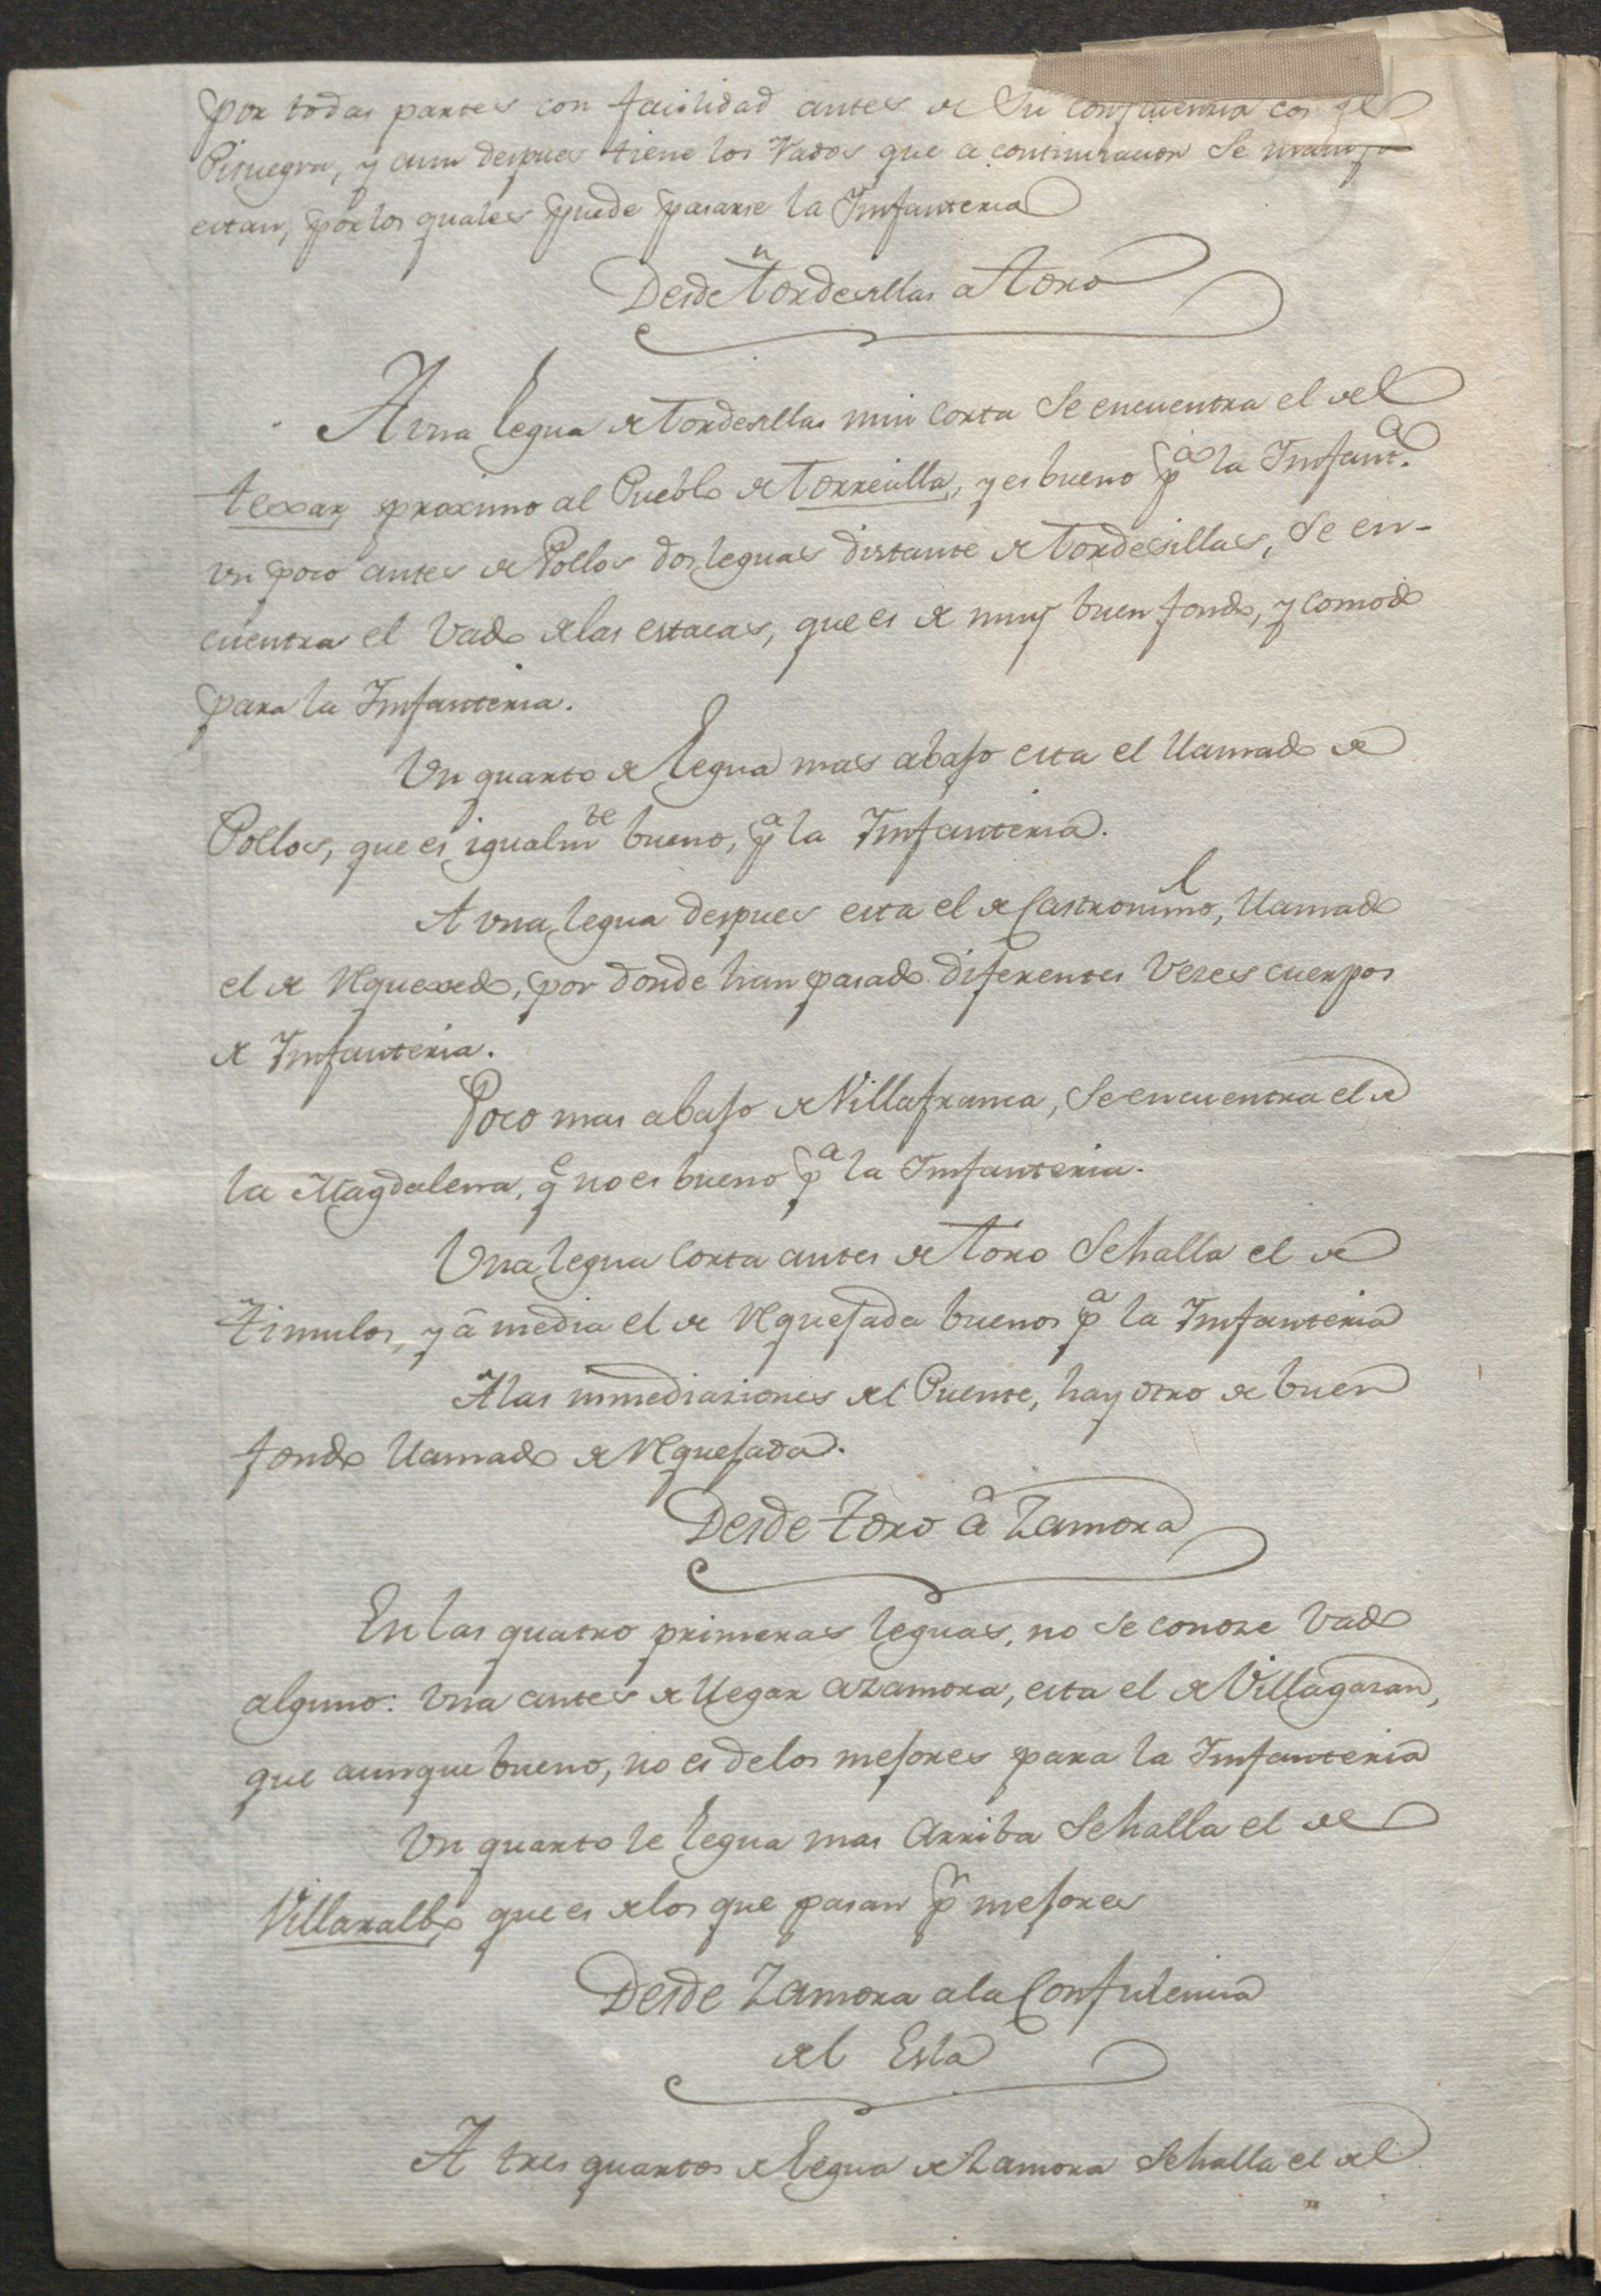 por todas partes con facilidad antes de su confluencia con el
Pisuegra, y aun despues tiene los Vados que a continuacion se manifi
estan, por los quales puede pasarse la Infanteria
Desde tordesillas a toro
A una legua de tordesillas mui corta se encuentra el del
texar, proximo al Pueblo de torrecilla, y es bueno pa la Infanta.
un poco antes de Pollos dos leguas distante de tordesillas, se en-
cuentra el Vado de las estacas, que es de muy buen fondo, y comodo
para la Infanteria.
Un quarto de legua mas abajo esta el llamado de
Pollos, que es igualmte bueno, pa la Infanteria.
A una legua despues esta el de Castronuño, llamado
el de Requexedo, por donde han pasado diferentes vezes cuerpos
de Infanteria.
Poco mas abajo de Villafranca, se encuentra el de
la Magdalena, qe no es bueno pa la Infanteria.
Una legua corta antes de toro se halla el de
timulos, y a media el de Requejada buenos pa la Infanteria
A las inmediaziones del Puente, hay otro de buen
fondo llamado de Requejada.
Desde toro a Zamora
En las quatro primeras leguas, no se conoze vado
alguno: una antes de llegar a Zamora, esta el de Villagazan,
que aunque bueno, no es de los mejores para la Infanteria
Un quarto de legua mas arriba se halla el de
Villaralbo que es de los que pasan pr mejores
Desde Zamora a la Confulencia
del Esla
A tres quartos de legua de Zamora se halla el del